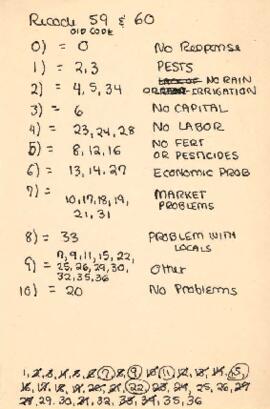 Recode 59 & 60
OLD CODE
0) = 0 No Response
1) = 2, 3 PESTS
2) = 4, 5, 34 LACK OF NO RAIN
OR IRRIGATION
3) = 6 NO CAPITAL
4) = 23, 24, 28 NO LABOR
5) = 8, 12, 16 NO FERT
OR PESTICIDES
6) = 13, 14, 27 ECONOMIC PROB
7) = 10, 17, 18, 19, MARKET
21, 31 PROBLEMS
8) = 33 PROBLEM WITH
LOCALS
9) = 7, 9, 11, 15, 22,
25, 26, 29, 30, Other
32, 35, 36
10) = 20 No Problems
1, 2, 3, 4, 5, 6, 7, 8, 9, 10, 11, 12, 13, 14, 15,
16, 17, 18, 19, 20, 21, 22, 23, 24, 25, 26, 27
28, 29, 30, 31, 32, 33, 34, 35, 36